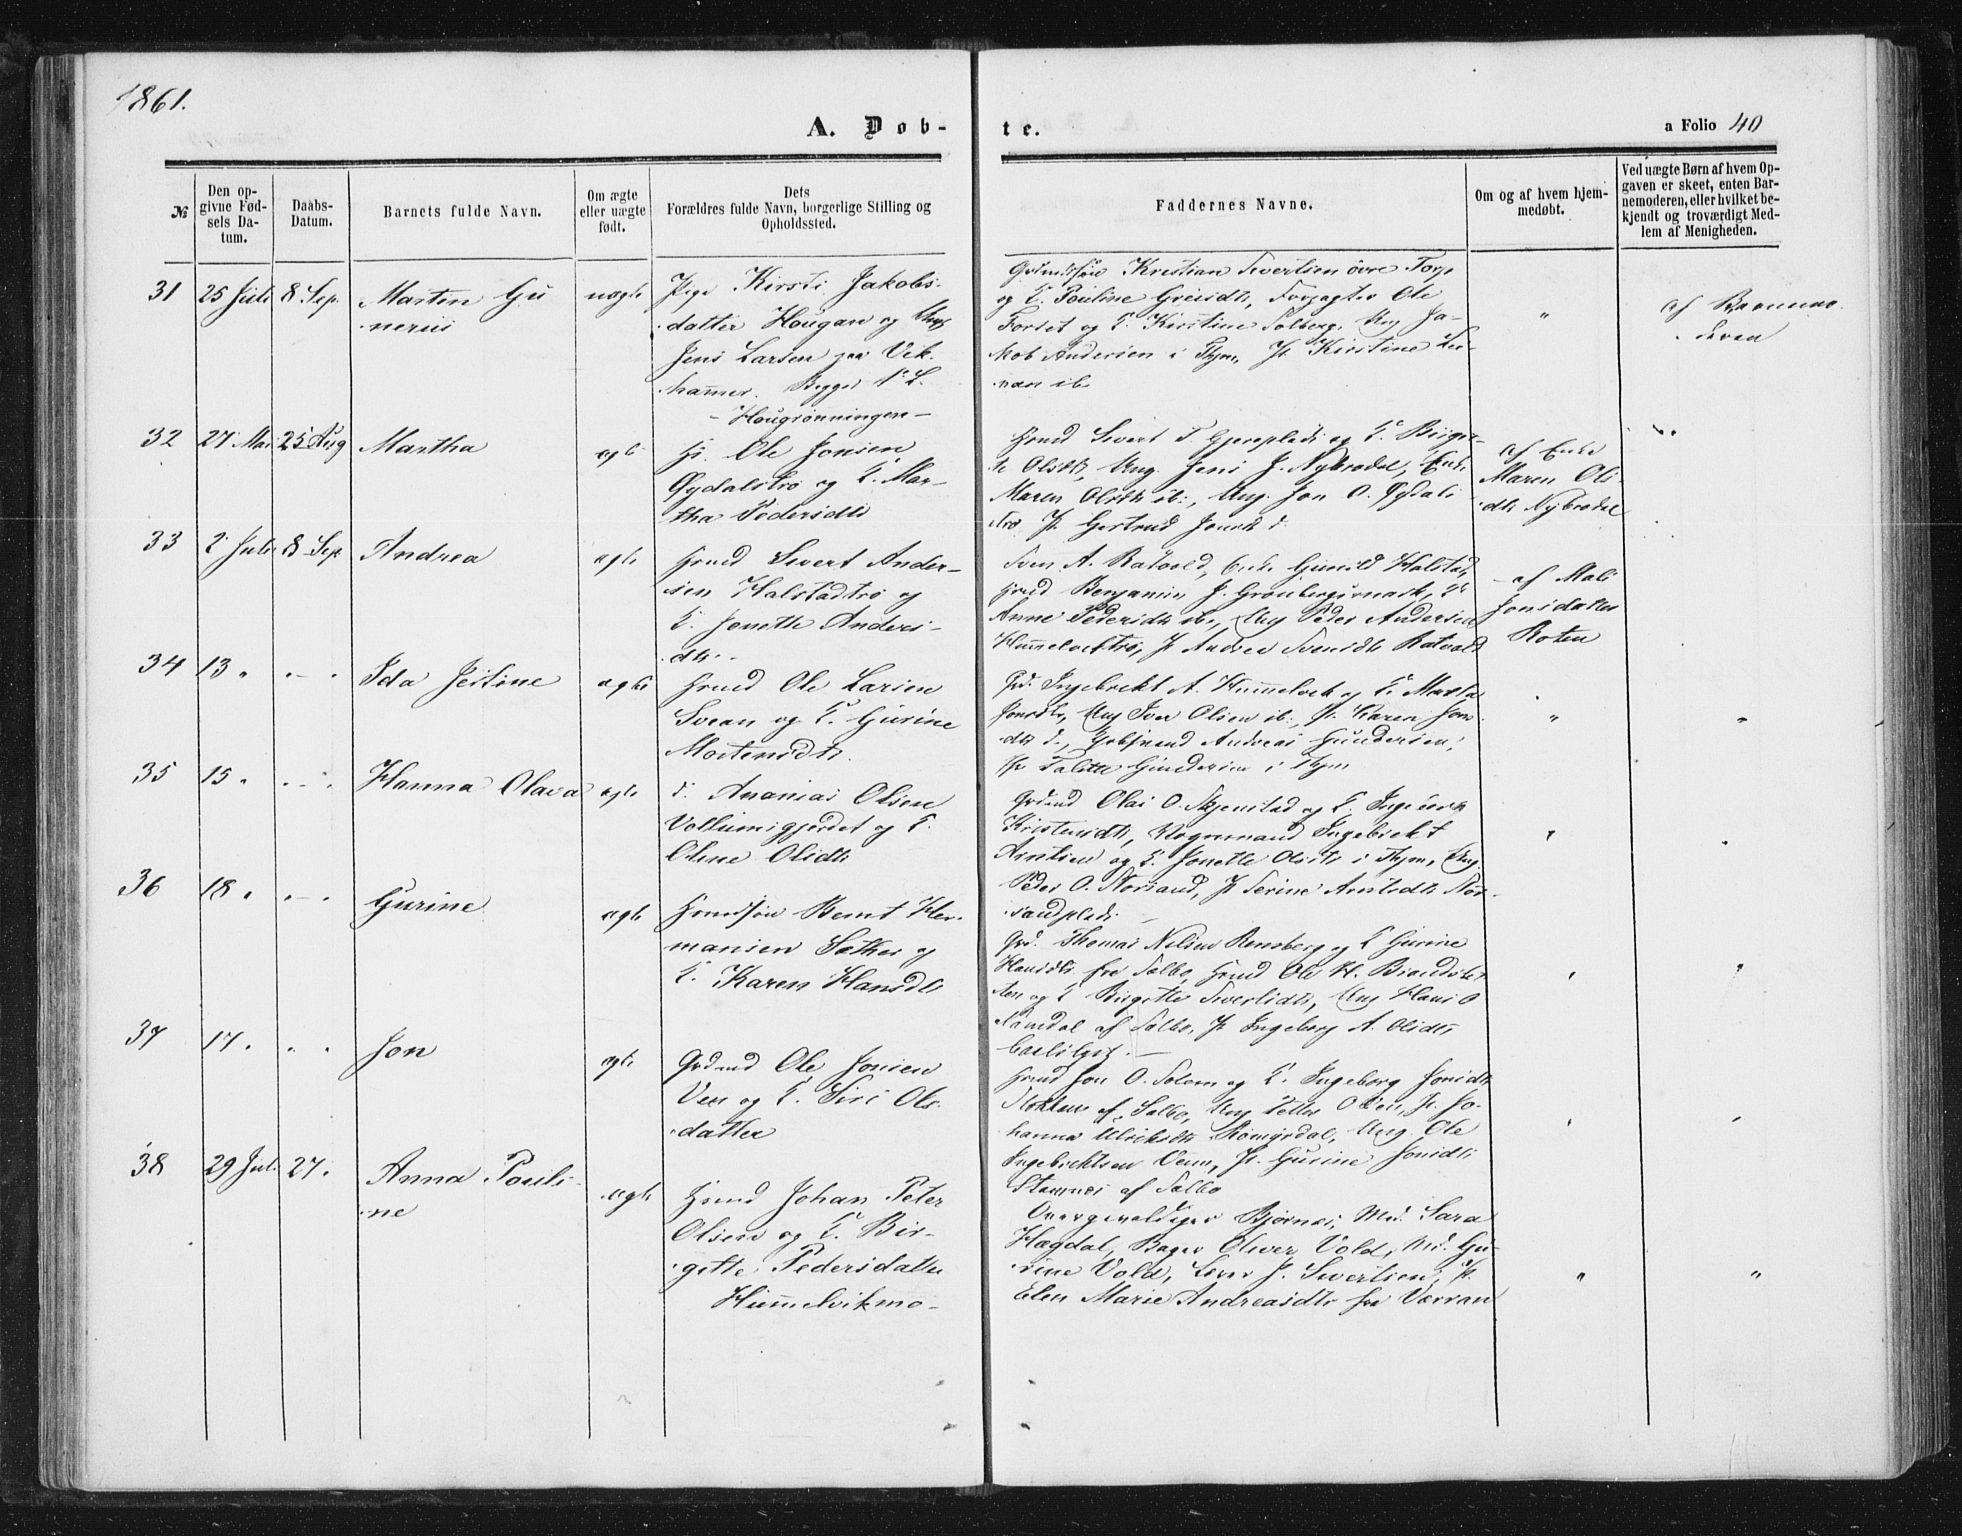 1861.
A. Døb-
te.
a Folio 40
№
Den op-
givne Fød-
sels Da-
tum.
Daabs-
Datum.
Barnets fulde Navn.
Om ægte
eller uægte
født.
Dets
Forældres fulde Navn, borgerlige Stilling og
Opholdssted.
Faddernes Navne.
Om og af hvem hjem-
medøbt.
Ved uægte Børn af hvem Op-
gaven er skeet, enten Bar-
nemoderen, eller hvilket be-
kjendt og troværdigt Med-
lem af Menigheden.
31
25 Juli
8 Sep.
Martin Gu
nerius
uægte
Pige Kirsti Jakobs-
datter Hougan og Ung
Jens Larsen paa Vik-
hamer. Begges
- Hougrønningen -
Kristian Sivertsen øvre Torp
og Pauline
Forset og Kirstine Solberg, Ung Ja-
kob Andersen i Thjen, P. Kirstine
nan ib
"
af Barnemo
deren
32
27 Mai
25 Aug
Martha
ægte
Ole Jonsen
Øydalstrø og K. Mar-
tha Pedersdtr
Hmd Sivert
te Olsdtr, Ung. Jens J. Nybrodal, Enke
Maren Olsdtr ib:, Ung. Jon O. Øydals
trø P. Gertrud
af Enke
Maren Ols
dtr Nybrodal
33
2 Juli
8 Sep
Andrea
ægte
Hmd Sivert Ander-
sen Halstadtrø og
K. Jonette Anders-
dtr.
Sven A. Ratvold, Enke Gunild Halstad,
Hmd Benjamin J.
Anne Pedersdtr ib, Ung Peder Andersen
P. Andrea Svensdtr Ratvold
af Mali
Jonsdatter
Roten
34
13 "
" - "
Ida Jestine
ægte
Hmd Ole Larsen
Svean og K. Gurine
Mortensdtr.
Gd. Ingebrekt A. Hummelvik og K. Marta
Jonsdtr, Ung Iver Olsen ib:, P. Karen Jons
dtr Andreas Gundersen,
P. Talette Gundersen i Thjem
"
"
35
15 "
" - "
Hanna Olava
ægte
Ananias Olsen
Vollumsgjerdet og K.
Oline Olsdtr
Olai O. Skjenstad og K. Ingeborg
Kristensdtr, Vognmand Ingebrekt
Arntsen og K. Jonette Olsdtr i Thjem, Ung
Peder O. Storsand, P. Serine Arntsdtr Stor-
sandplads
"
"
36
18 "
" - "
Gurine
ægte
Bernt Her-
mansen Sæther og
K. Karen Hansdtr
Gd. Thomas Nilsen Rensberg og K. Gurine
Hansdtr fra Selbo, Hmd Ole H.
ten og K Birgitte Sivertsdtr, Ung Hans O
af Selbo, P. Ingeborg A. Olsdtr
"
"
37
17 "
" "
Jon
ægte
Ole Jonsen
Ven og K. Siri Ols-
datter
Hmd Jon O. Solem og K. Ingeborg Jonsdtr
af Selbo, Ung Petter Olsen, P. Jo-
hanna Ulriksdtr Ung. Ole
Ingebrektsen Venn, P. Gurine Jonsdtr
Stamnes af Selbo
"
"
38
29 Jul.
27.
Anna Pauli-
ne
ægte
Hmd Johan Peter
Olsen og K. Bir-
gitte Pedersdatter
Hummelvikmo-
Bjørnes, Md. Sara
Hægdal, Bager Oliver Vold, Md. Gu-
rine Vold, J. Sivertsen, P.
Elen Marie Andreasdtr fra Værran
"
"